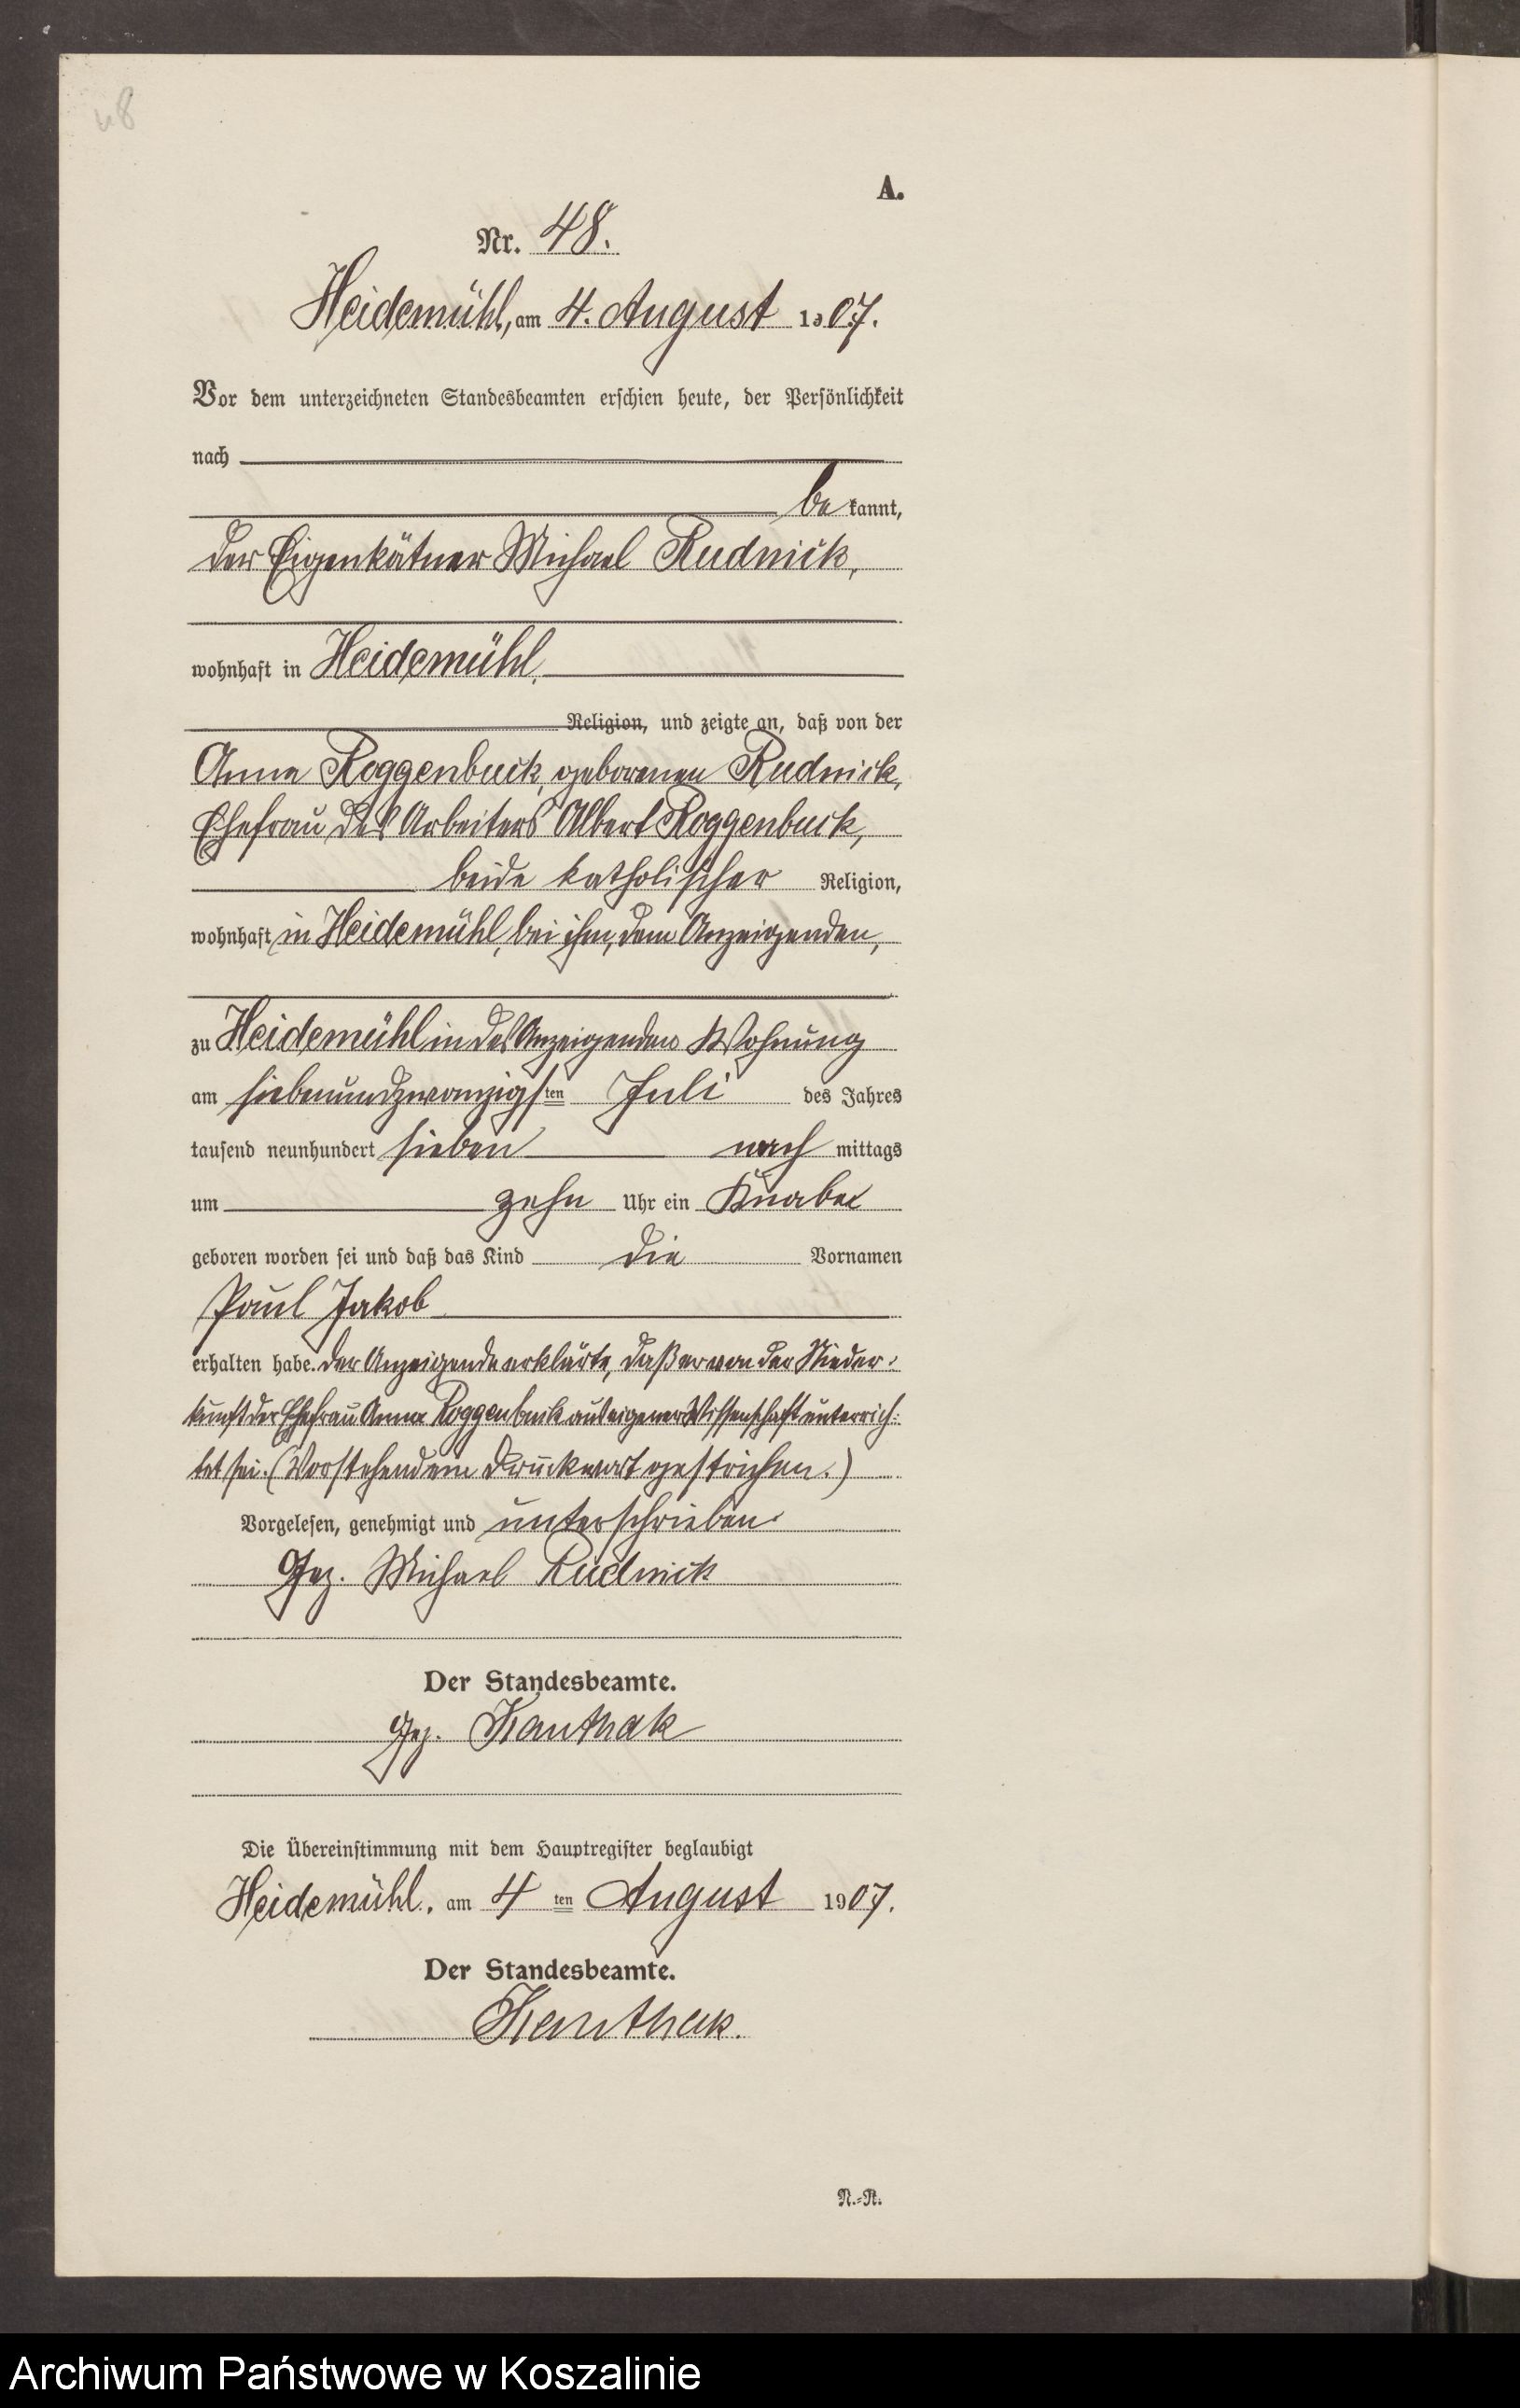 48
A.
Nr. 48.
Heidemühl, am 4. August 1907.
Vor dem unterzeichneten Standesbeamten erschien heute, der Persönlichkeit
nach
be kannt,
der Eigenkätner Michael Rudnick,
wohnhaft in Heidemühl,
Religion, und zeigte an, daß von der
Anna Roggenbuck, geborenen Rudnick,
Ehefrau des Arbeiters Albert Roggenbuck,
beide katholischer Religion,
wohnhaft in Heidemühl, bei ihm, dem Anzeigenden,
zu Heidemühl in des Anzeigenden Wohnung
am siebenundzwanzigsten Juli des Jahres
tausend neunhundert sieben nach mittags
um zehn Uhr ein Knabe
geboren worden sei und daß das Kind die Vornamen
Paul Jakob
erhalten habe. Der Anzeigende erklärte, daß er von der Nieder-
kunft der Ehefrau Anna Roggenbuck aus eigener Wissenschaft unterrich-
tet sei. (Vorstehend ein Druckwort gestrichen.)
Vorgelesen, genehmigt und unterschrieben.
Gez. Michael Rudnick
Der Standesbeamte.
Gez. Kanthak
Die Übereinstimmung mit dem Hauptregister beglaubigt
Heidemühl, am 4 ten August 1907.
Der Standesbeamte.
Kanthak.
N.-R.
Archiwum Państwowe w Koszalinie